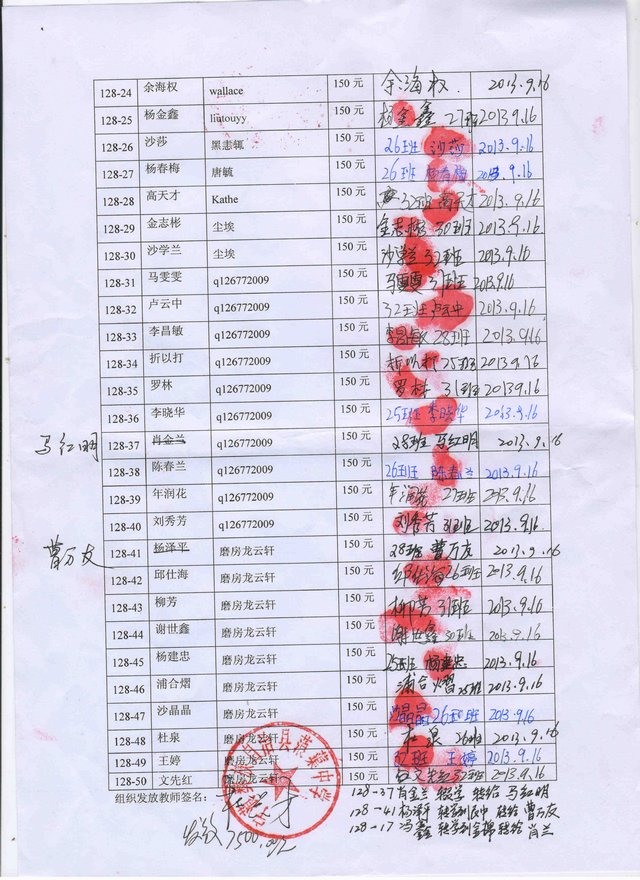 128-24 余海权 wallace 150 元 余海权 2013.9.16
128-25 杨金鑫 liutouyy 150 元 杨金鑫 27班 2013.9.16
128-26 沙莎 黑志辄 150 元 26班 沙莎 2013.9.16
128-27 杨春梅 唐毓 150 元 26班 杨春梅 2013.9.16
128-28 高天才 Kathe 150 元 32班 高天才 2013.9.16
128-29 金志彬 尘埃 150 元 金志彬 30班 2013.9.16
128-30 沙学兰 尘埃 150 元 沙学兰 32班 2013.9.16
128-31 马雯雯 q126772009 150 元 马雯雯 31班 2013.9.16
128-32 卢云中 q126772009 150 元 32班 卢云中 2013.9.16
128-33 李昌敏 q126772009 150 元 李昌敏 28班 2013.9.16
128-34 折以打 q126772009 150 元 折以打 25班 2013.9.16
128-35 罗林 q126772009 150 元 罗林 31班 2013.9.16
128-36 李晓华 q126772009 150 元 25班 李晓华 2013.9.16
马红明 128-37 肖金兰 q126772009 150 元 28班 马红明 2013.9.16
128-38 陈春兰 q126772009 150 元 26班 陈春兰 2013.9.16
128-39 年润花 q126772009 150 元 年润花 27班 2013.9.16
128-40 刘秀芳 q126772009 150 元 刘秀芳 31班 2013.9.16
曹万友 128-41 杨泽平 磨房龙云轩 150 元 28班 曹万友 2013.9.16
128-42 邱仕海 磨房龙云轩 150 元 邱仕海 26班 2013.9.16
128-43 柳芳 磨房龙云轩 150 元 柳芳 31班 2013.9.16
128-44 谢世鑫 磨房龙云轩 150 元 谢世鑫 30班 2013.9.16
128-45 杨建忠 磨房龙云轩 150 元 25班 杨建忠 2013.9.16
128-46 浦合熠 磨房龙云轩 150 元 浦合熠 25班 2013.9.16
128-47 沙晶晶 磨房龙云轩 150 元 沙晶晶 26班 2013.9.16
128-48 杜泉 磨房龙云轩 150 元 杜泉 26班 2013.9.16
128-49 王婷 磨房龙云轩 150 元 王婷 2013.9.16
128-50 文先红 磨房龙云轩 150 元 文先红 32班 2013.9.16
组织发放教师签名:
128-37 肖金兰 转学 转给 马红明
128-41 杨泽平 转给 曹万友
128-17 冯鑫 转给 肖兰
发放7500.00元